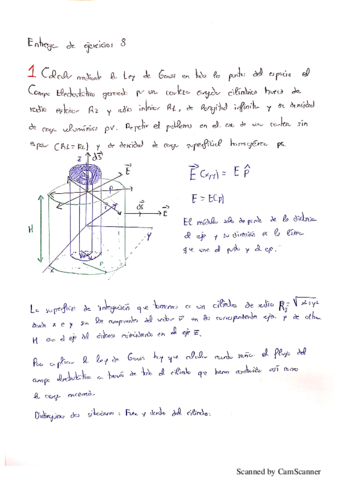 Entrega de ejercicios 8
1 Calcular mediante la Ley de Gauss en todos los puntos del espacio el
Campo Electrostático generado por un corteza cargada cilíndrica hueca de
radio exterior R2 y radio interior R1, de longitud infinita y de densidad
de carga volumétrica ρv. Repetir el problema en el caso de un corteza sin
espesor (R1=R2) y de densidad de carga superficial homogénea ρs.
z dS
E
ρ
E (x,y) = E ρ̂
E = E(ρ)
H
r
dS
E
y
x
El módulo solo depende de la distancia
al eje y su dirección es la línea
que une el punto y el eje.
La superficie de integración que tomaremos es un cilindro de radio
donde x e y son las componentes del vector r en su correspondiente eje y de altura
H con el eje del cilindro coincidiendo en el eje z.
Para aplicar la ley de Gauss hay que calcular cuanto vale el flujo del
campo electrostático a través de todo el cilindro que hemos construido así como
la carga encerrada.
Distinguimos dos situaciones: Fuera y dentro del cilindro.
Scanned by CamScanner